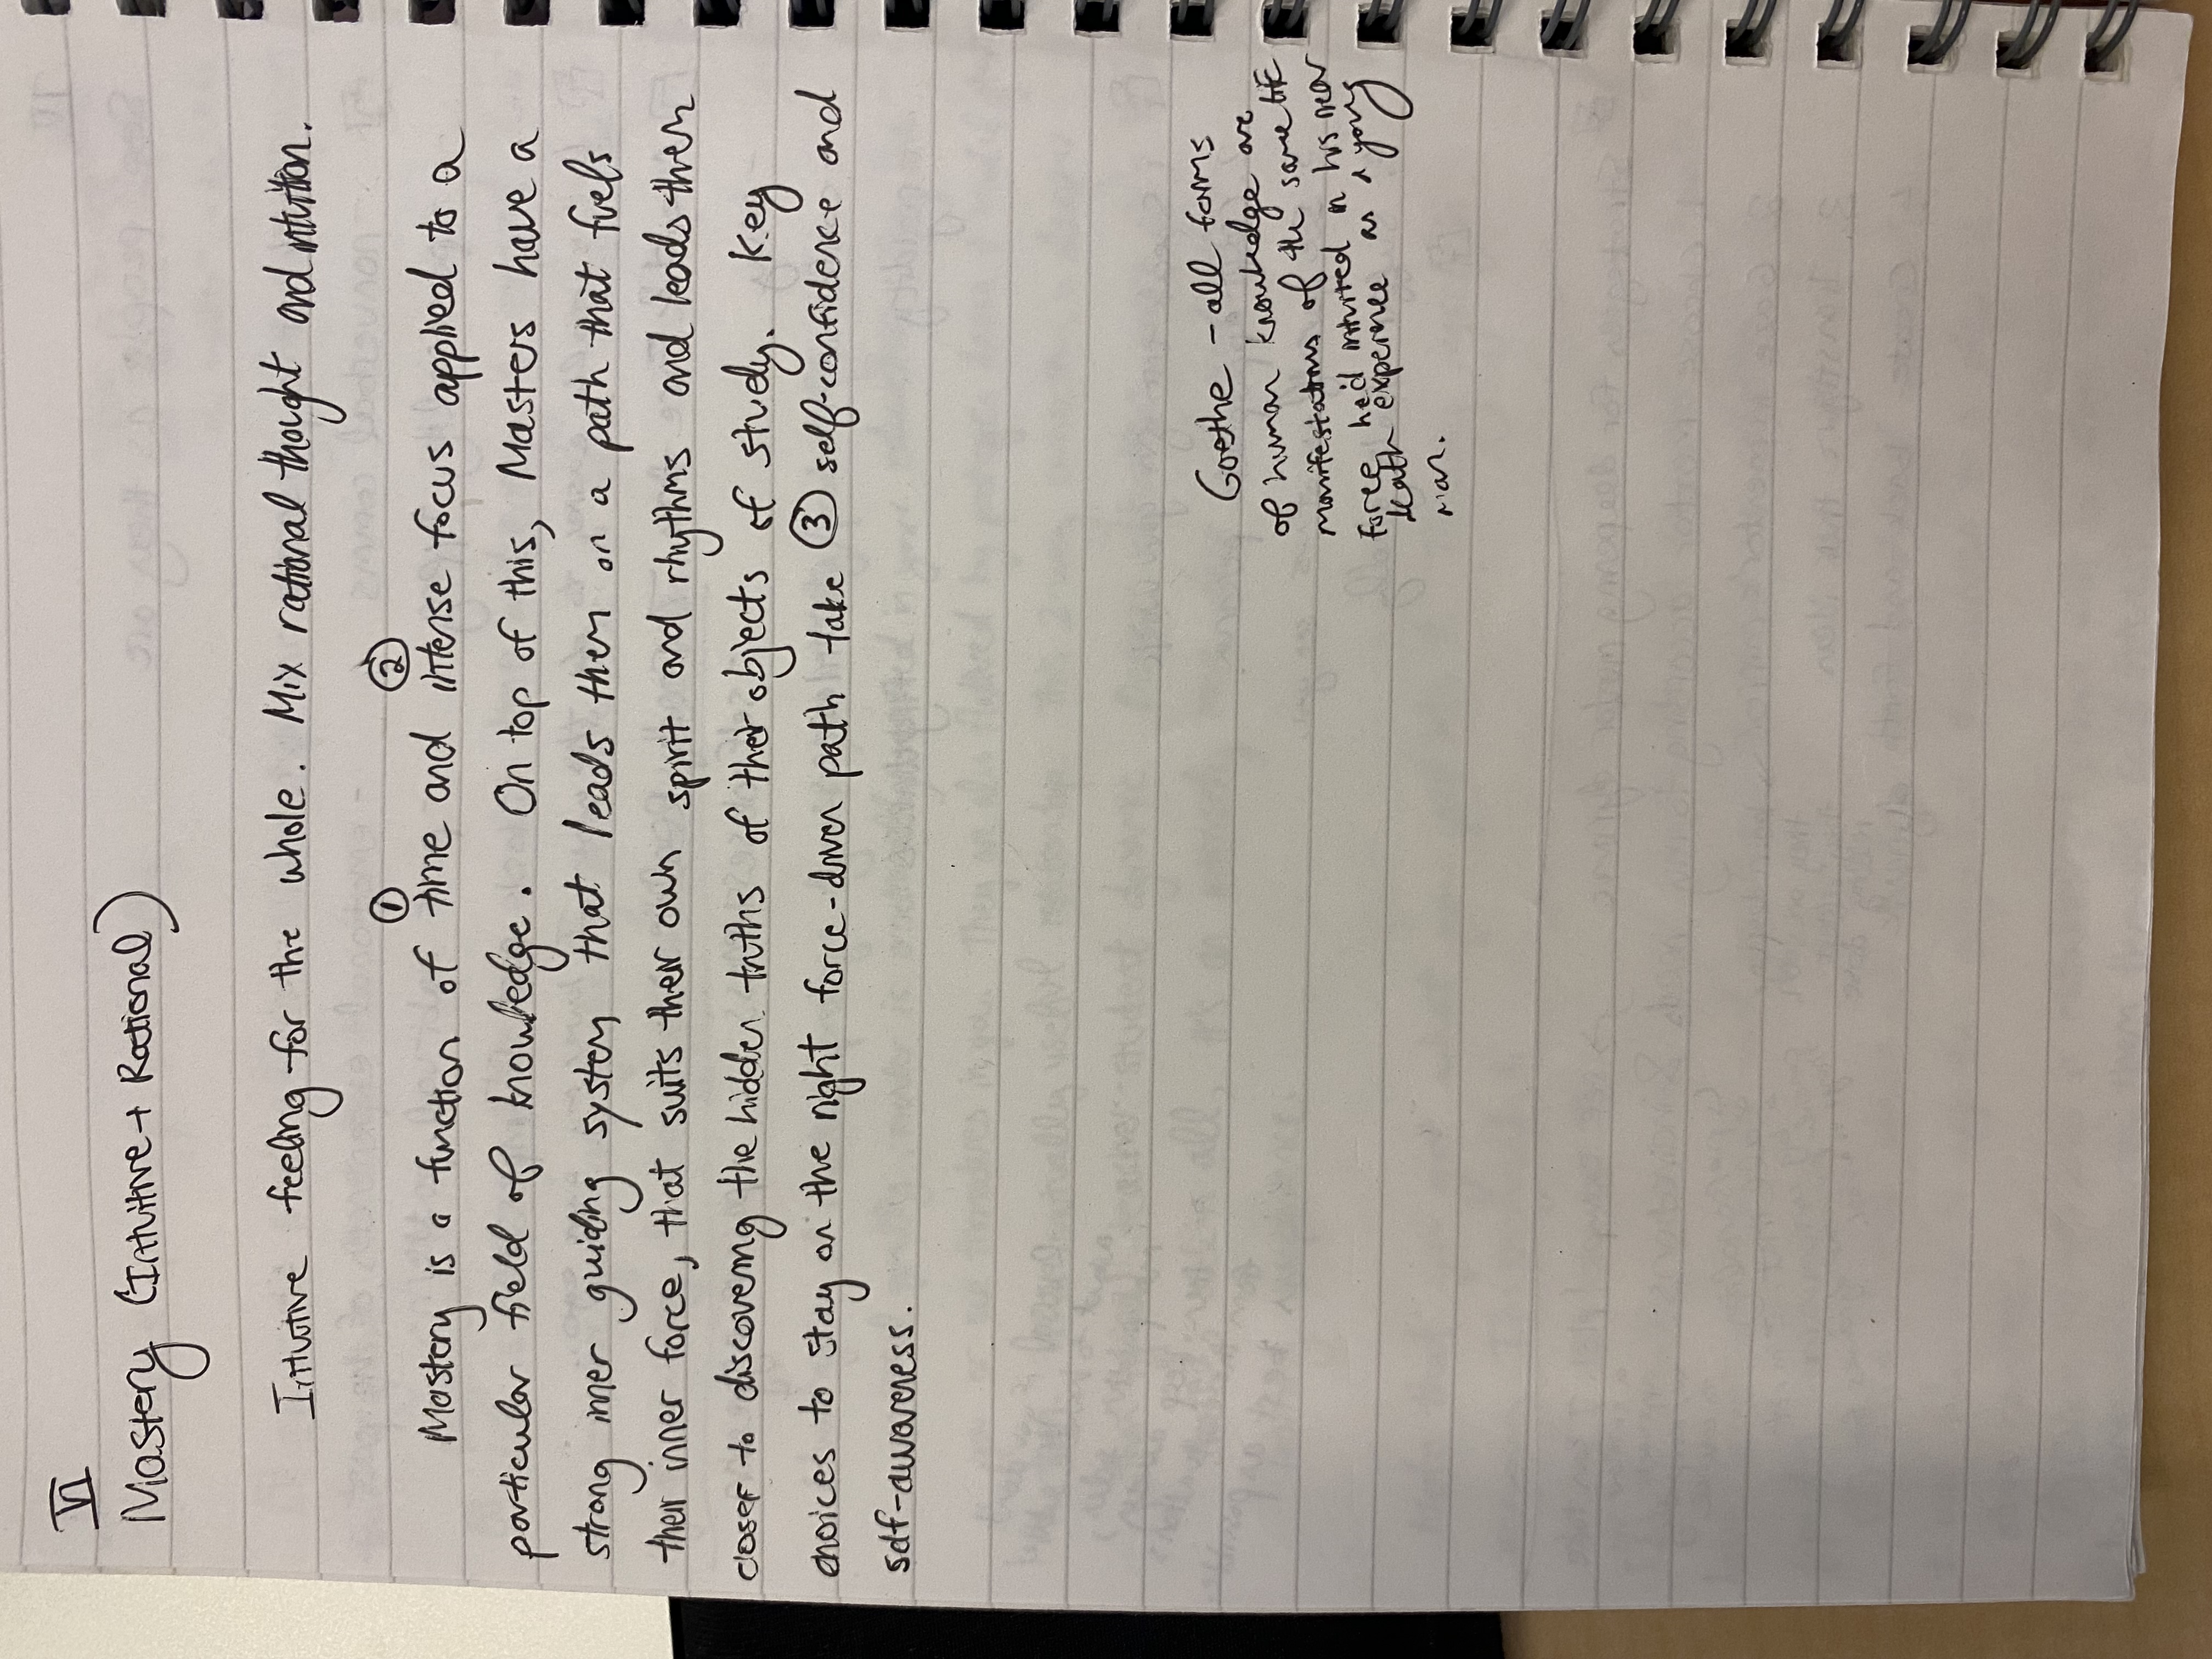 VI
Mastery (Intuitive + Rational)
Intuitive feeling for the whole. Mix rational thought and intuition.
① ②
Mastery is a function of time and intense focus applied to a
particular field of knowledge. On top of this, Masters have a
strong inner guiding system that leads them on a path that fuels
their inner force, that suits their own spirit and rhythms and leads them
closer to discovering the hidden truths of their objects of study. Key
choices to stay on the right force-driven path take ③ self-confidence and
self-awareness.
Goethe - all forms
of human knowledge are
manifestations of the same life
force he'd intuited in his near
death experience as a young
man.